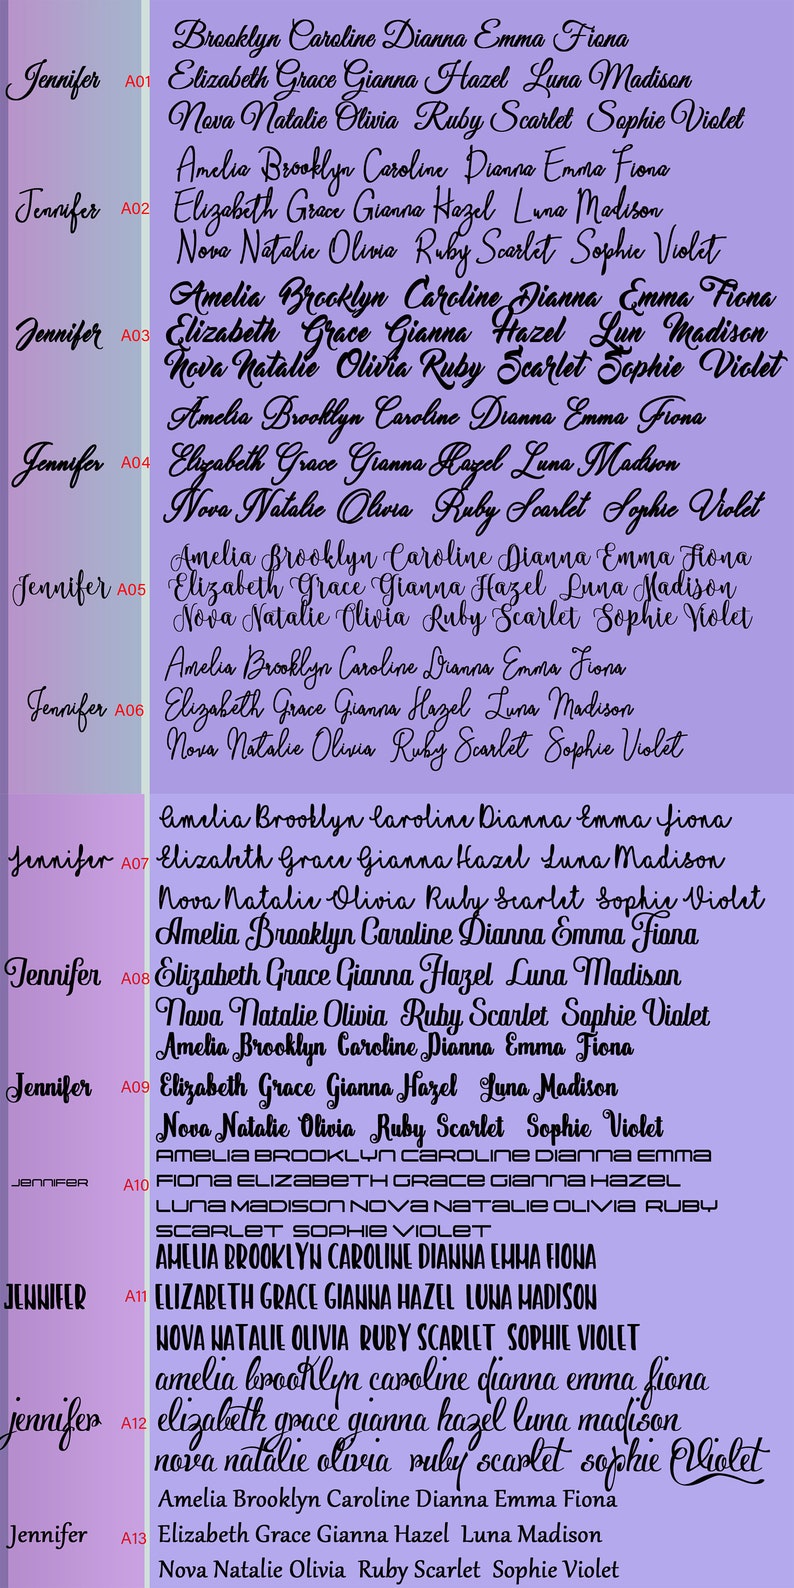 Brooklyn Caroline Dianna Emma Fiona
Jennifer A01 Elizabeth Grace Gianna Hazel Luna Madison
Nova Natalie Olivia Ruby Scarlet Sophie Violet
Amelia Brooklyn Caroline Dianna Emma Fiona
Jennifer A02 Elizabeth Grace Gianna Hazel Luna Madison
Nova Natalie Olivia Ruby Scarlet Sophie Violet
Amelia Brooklyn Caroline Dianna Emma Fiona
Jennifer A03 Elizabeth Grace Gianna Hazel Lun Madison
Nova Natalie Olivia Ruby Scarlet Sophie Violet
Amelia Brooklyn Caroline Dianna Emma Fiona
Jennifer A04 Elizabeth Grace Gianna Hazel Luna Madison
Nova Natalie Olivia Ruby Scarlet Sophie Violet
Amelia Brooklyn Caroline Dianna Emma Fiona
Jennifer A05 Elizabeth Grace Gianna Hazel Luna Madison
Nova Natalie Olivia Ruby Scarlet Sophie Violet
Amelia Brooklyn Caroline Dianna Emma Fiona
Jennifer A06 Elizabeth Grace Gianna Hazel Luna Madison
Nova Natalie Olivia Ruby Scarlet Sophie Violet
Amelia Brooklyn Caroline Dianna Emma Fiona
Jennifer A07 Elizabeth Grace Gianna Hazel Luna Madison
Nova Natalie Olivia Ruby Scarlet Sophie Violet
Amelia Brooklyn Caroline Dianna Emma Fiona
Jennifer A08 Elizabeth Grace Gianna Hazel Luna Madison
Nova Natalie Olivia Ruby Scarlet Sophie Violet
Amelia Brooklyn Caroline Dianna Emma Fiona
Jennifer A09 Elizabeth Grace Gianna Hazel Luna Madison
Nova Natalie Olivia Ruby Scarlet Sophie Violet
AMELIA BROOKLYN CAROLINE DIANNA EMMA
JENNIFER A10 FIONA ELIZABETH GRACE GIANNA HAZEL
LUNA MADISON NOVA NATALIE OLIVIA RUBY
SCARLET SOPHIE VIOLET
AMELIA BROOKLYN CAROLINE DIANNA EMMA FIONA
JENNIFER A11 ELIZABETH GRACE GIANNA HAZEL LUNA MADISON
NOVA NATALIE OLIVIA RUBY SCARLET SOPHIE VIOLET
amelia brooKlyn caroline dianna emma fiona
jennifer A12 elizabeth grace gianna hazel luna madison
nova natalie olivia ruby scarlet sophie Violet
Amelia Brooklyn Caroline Dianna Emma Fiona
Jennifer A13 Elizabeth Grace Gianna Hazel Luna Madison
Nova Natalie Olivia Ruby Scarlet Sophie Violet